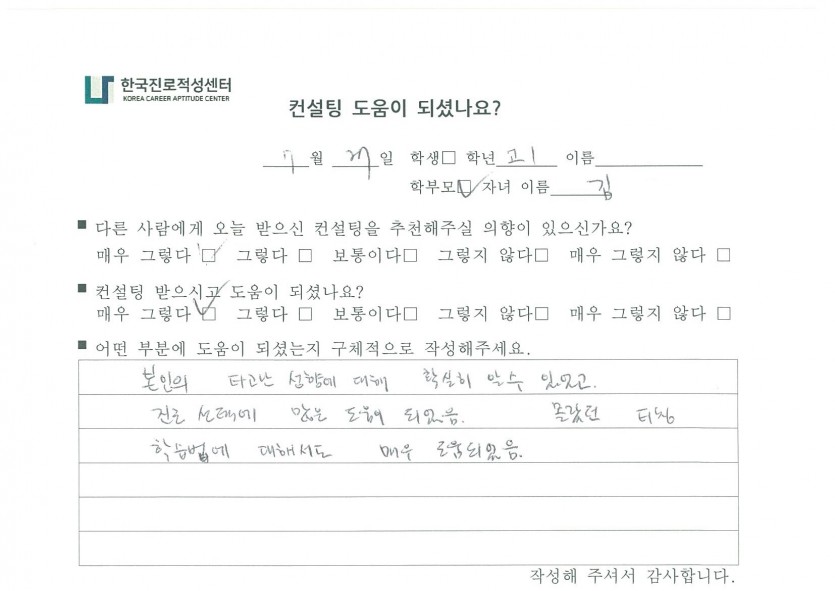 한국진로적성센터
KOREA CAREER APTITUDE CENTER
컨설팅 도움이 되셨나요?
7월 일 학생□ 학년 고1 이름
학부모☑ 자녀 이름 김
■ 다른 사람에게 오늘 받으신 컨설팅을 추천해주실 의향이 있으신가요?
매우 그렇다 ☑ 그렇다 □ 보통이다□ 그렇지 않다□ 매우 그렇지 않다 □
■ 컨설팅 받으시고 도움이 되셨나요?
매우 그렇다 ☑ 그렇다 □ 보통이다□ 그렇지 않다□ 매우 그렇지 않다 □
■ 어떤 부분에 도움이 되셨는지 구체적으로 작성해주세요.
본인의 타고난 성향에 대해 확실히 알수 있었고.
진로 선택에 많은 도움이 되었음. 몰랐던
학습법에 대해서도 매우 도움되었음.
작성해 주셔서 감사합니다.